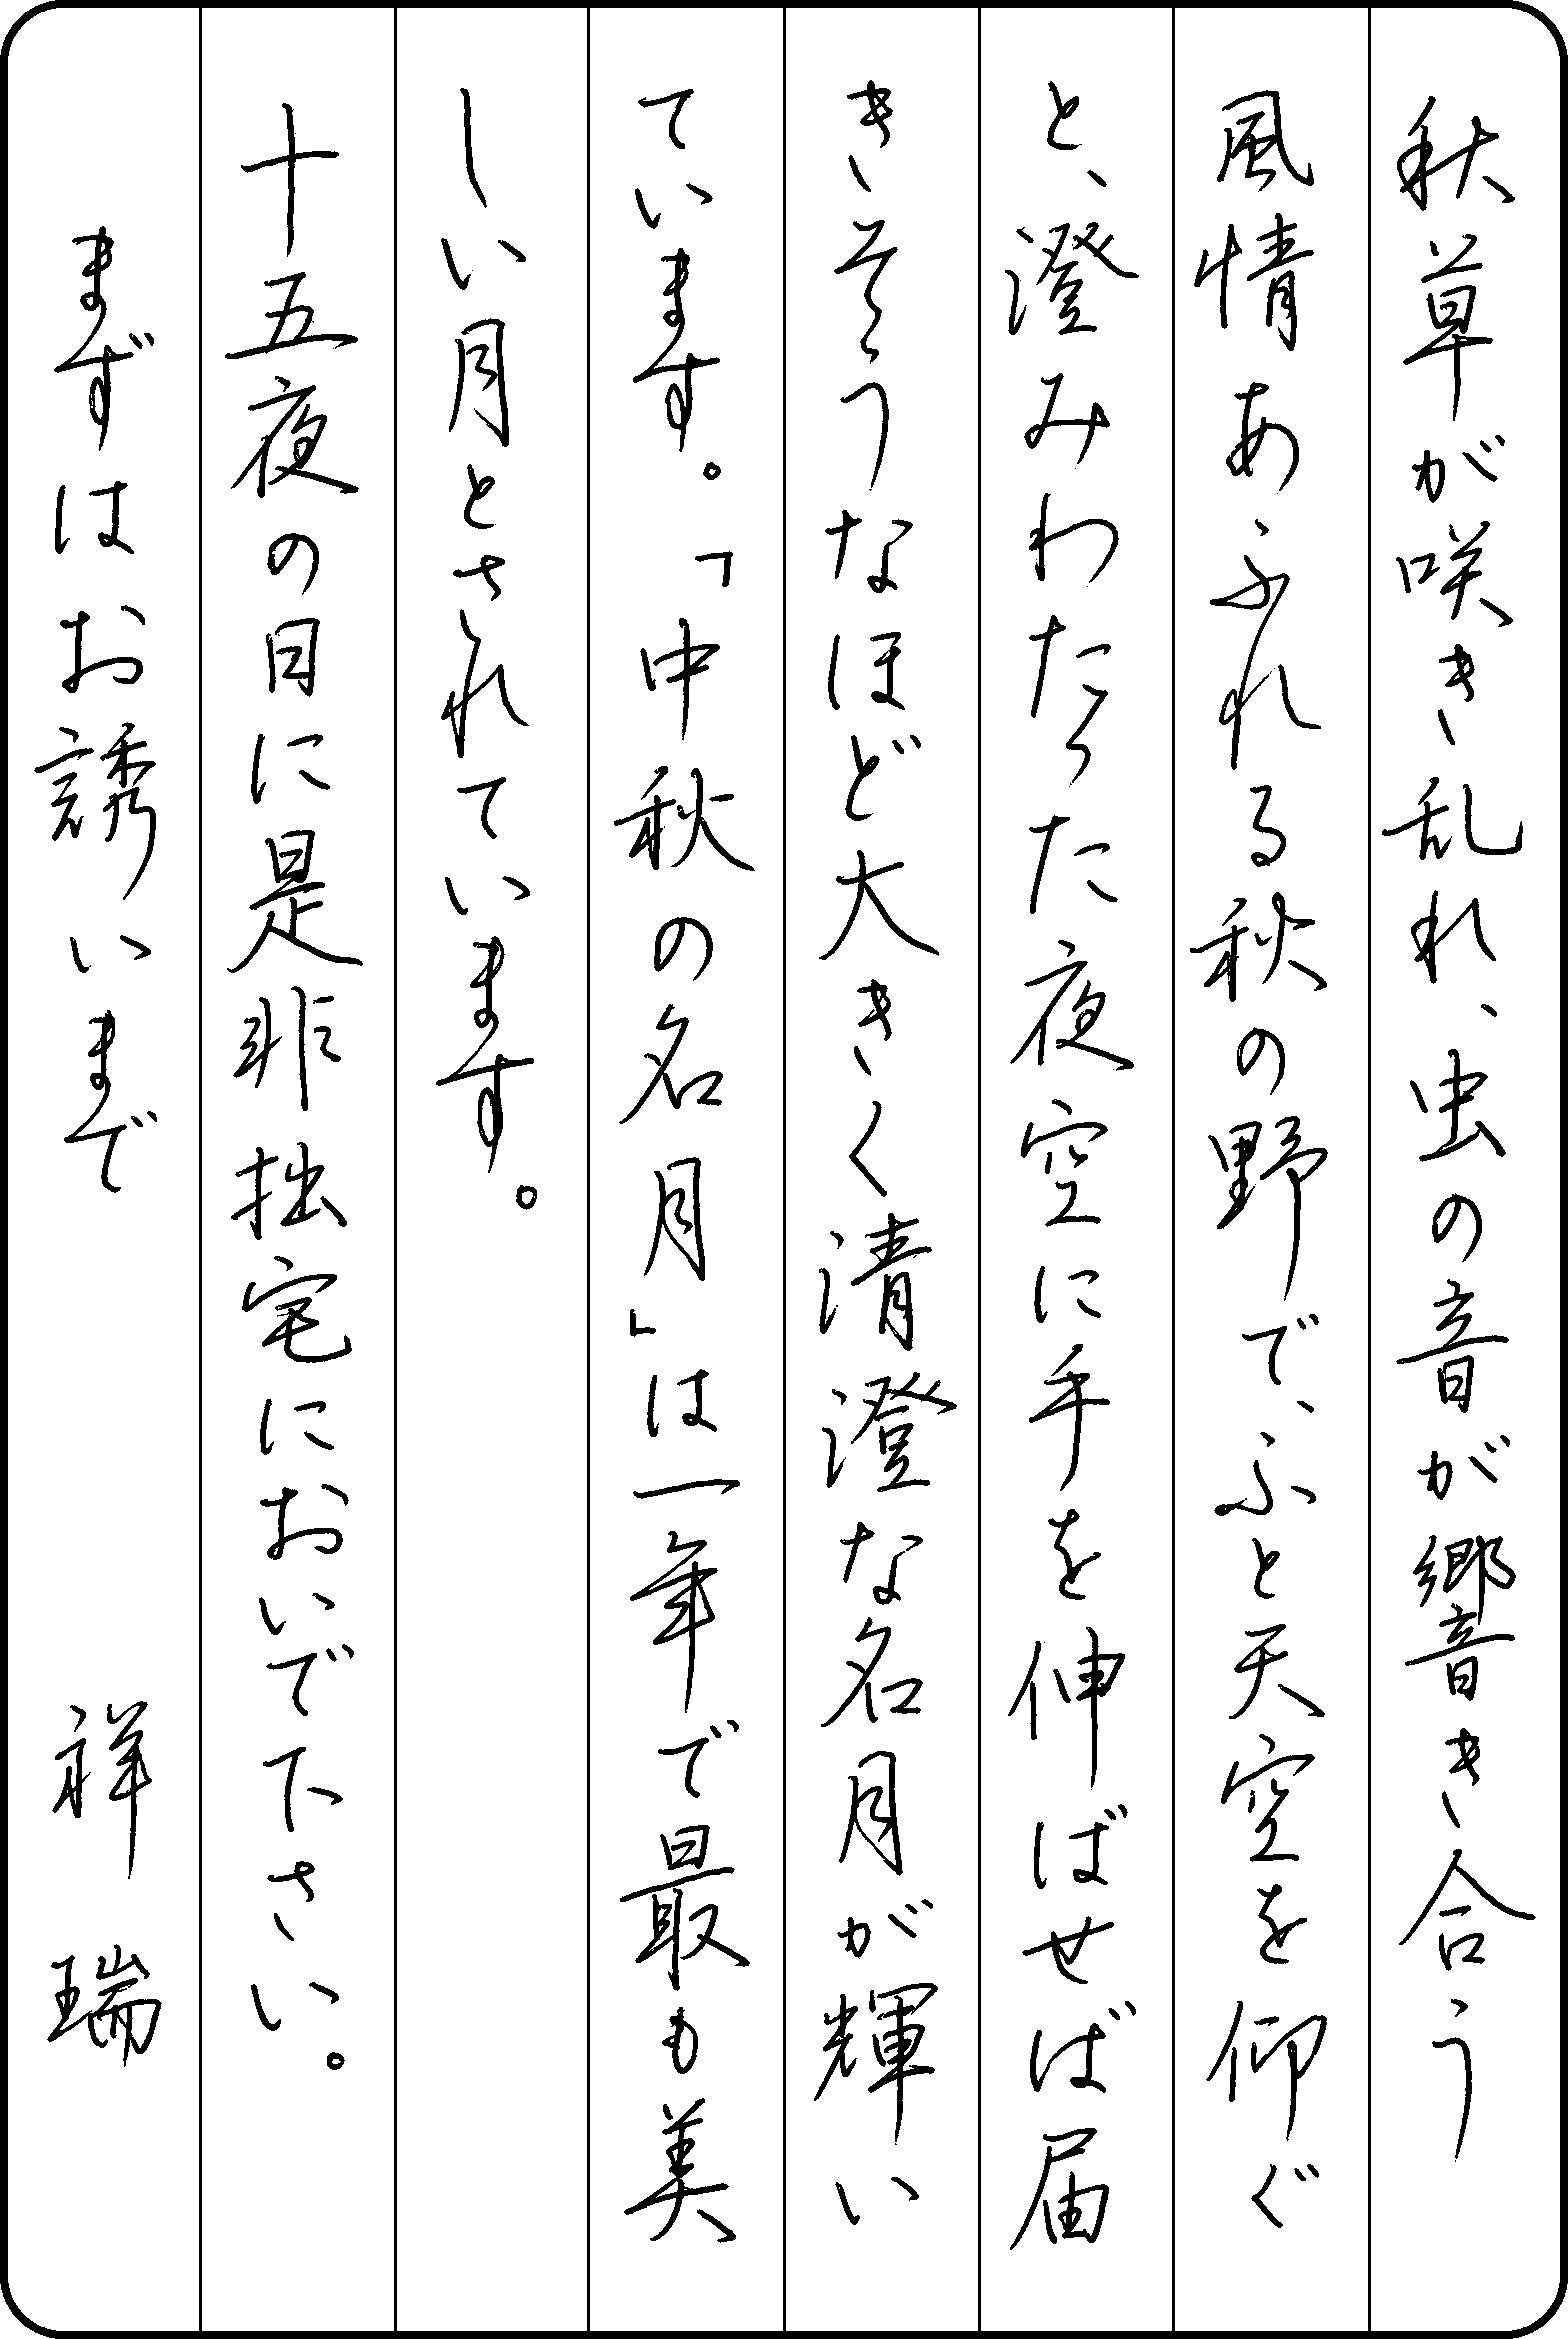 秋草が咲き乱れ、虫の音が響き合う
風情あふれる秋の野で、ふと天空を仰ぐ
と、澄みわたった夜空に手を伸ばせば届
きそうなほど大きく清澄な名月が輝い
ています。「中秋の名月」は一年で最も美
しい月とされています。
十五夜の日に是非拙宅においで下さい。
まずはお誘いまで 祥瑞